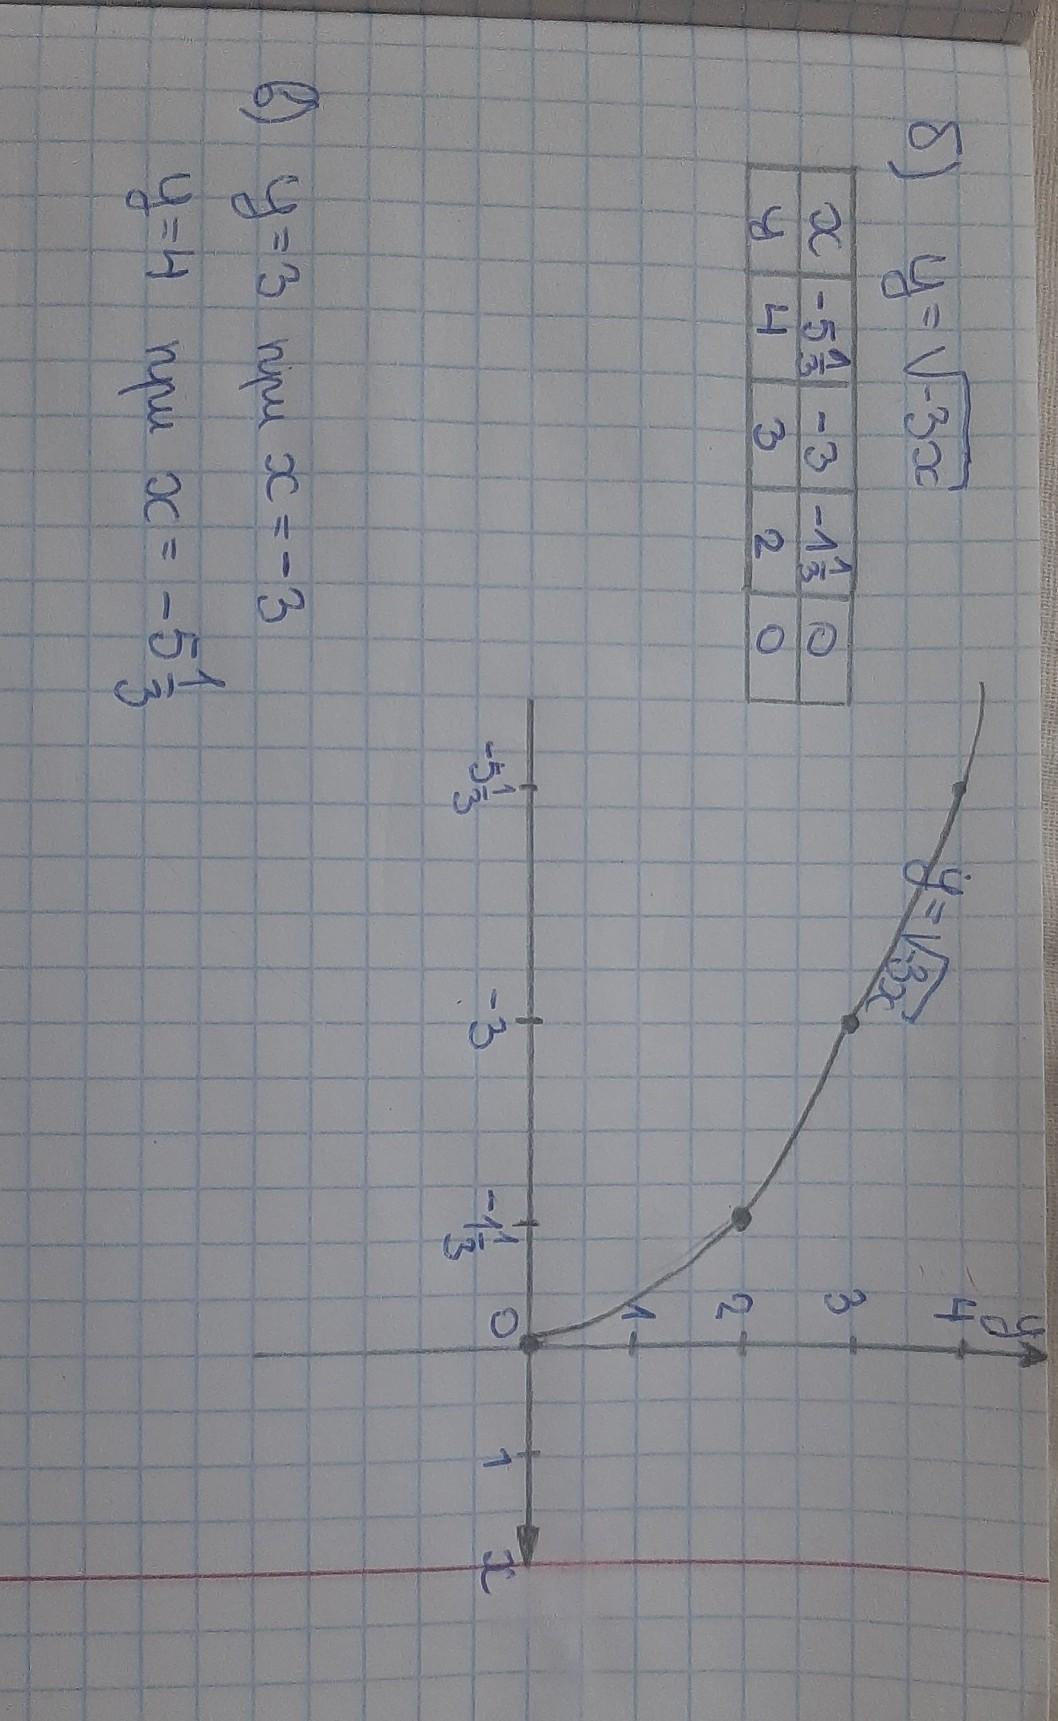 б) y = √-3x
x -5 1/3 -3 -1 1/3 0
y 4 3 2 0
y
4
3
2
1
y = √-3x
-5 1/3 -3 -1 1/3 0 1 x
в) y = 3 при x = -3
y = 4 при x = -5 1/3